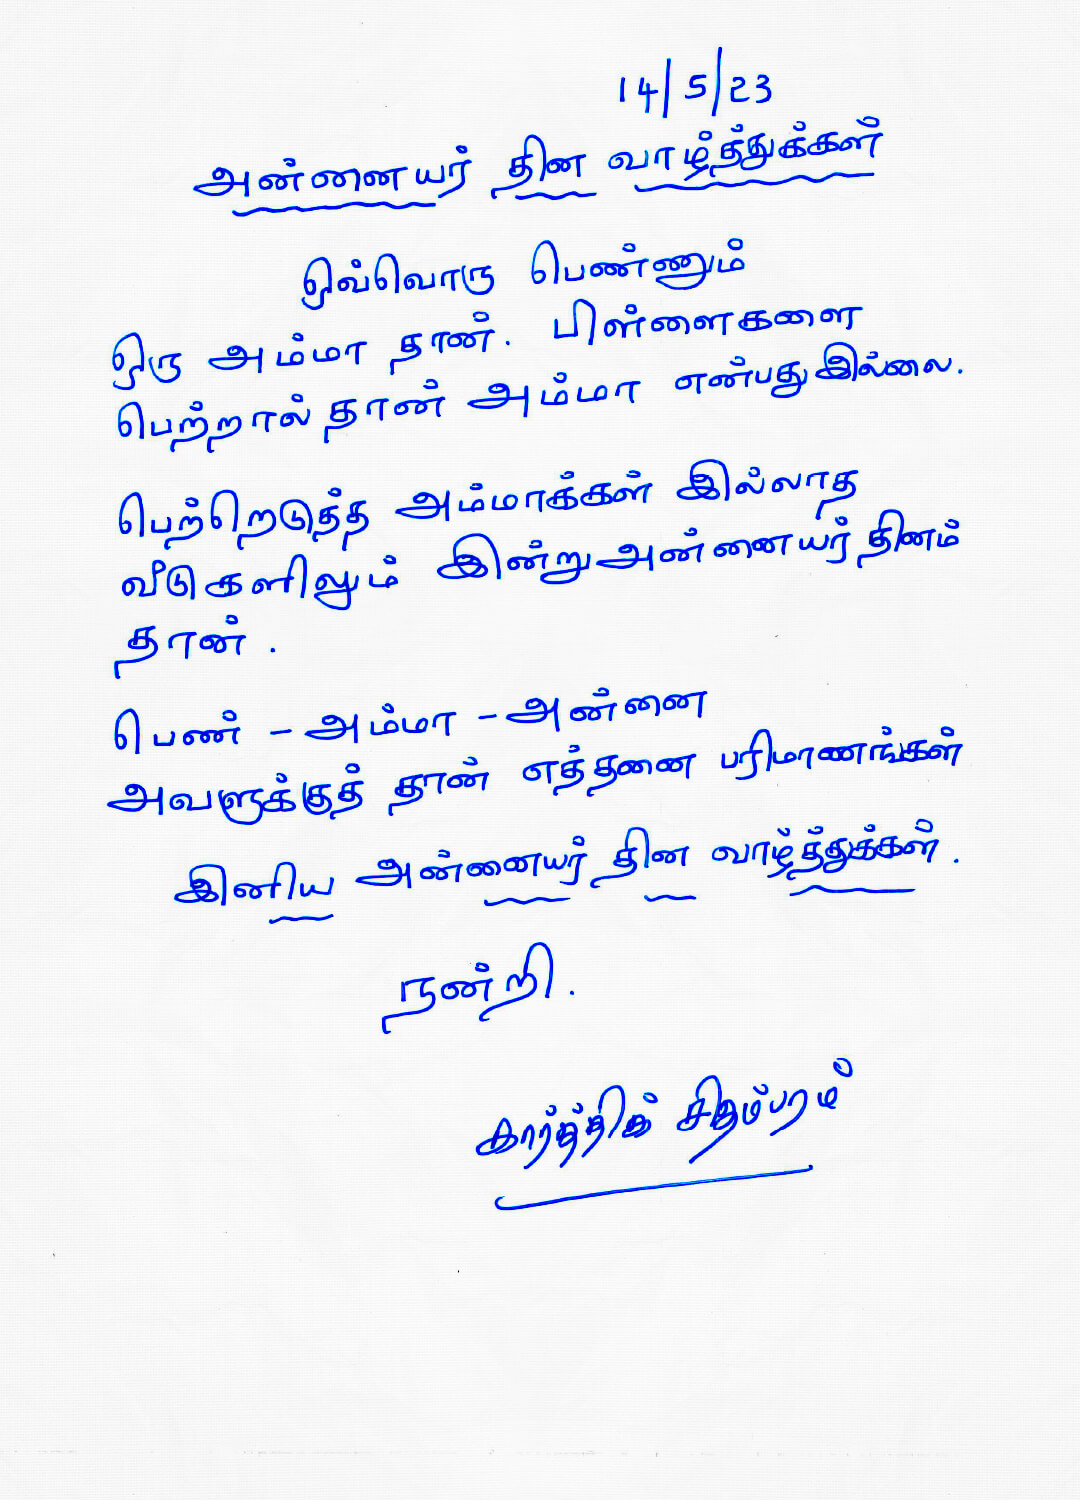 14/5/23
அன்னையர் தின வாழ்த்துக்கள்
ஒவ்வொரு பெண்ணும்
ஒரு அம்மா தான். பிள்ளைகளை
பெற்றால் தான் அம்மா என்பது இல்லை.
பெற்றெடுத்த அம்மாக்கள் இல்லாத
வீடுகளிலும் இன்று அன்னையர் தினம்
தான்.
பெண் - அம்மா - அன்னை
அவளுக்குத் தான் எத்தனை பரிமாணங்கள்
இனிய அன்னையர் தின வாழ்த்துக்கள்.
நன்றி.
கார்த்திக் சிதம்பரம்